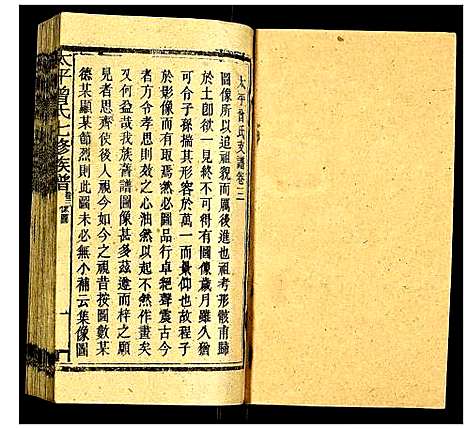 太平曾氏支譜卷三
圖像所以追祖親而厲後進也祖考形骸甫歸
於土卽欲一見終不可得有圖像歲月雖久猶
可令子孫揣其形容於萬一而景仰也故程子
於影像而有取焉然必圖品行卓犖聲震古今
者方令孝思則效之心油然以起不然作畫矣
又何益哉我族舊譜圖像甚多茲遵而梓之願
見者思齊使後人視今如今之視昔按圖數某
德某顯某節烈則此圖未必無小補云集像圖
太平曾氏七修族譜
卷三
像圖
一